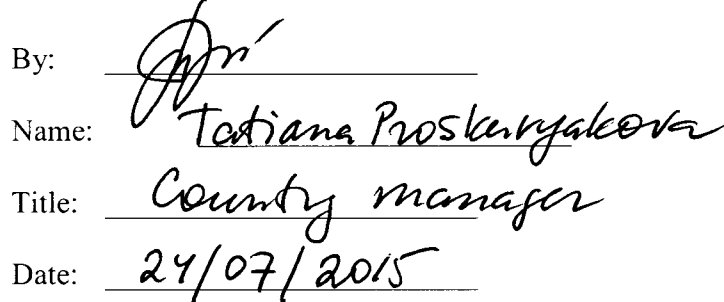 By:
Name: Tatiana Proskuryakova
Title: Country manager
Date: 24/07/2015